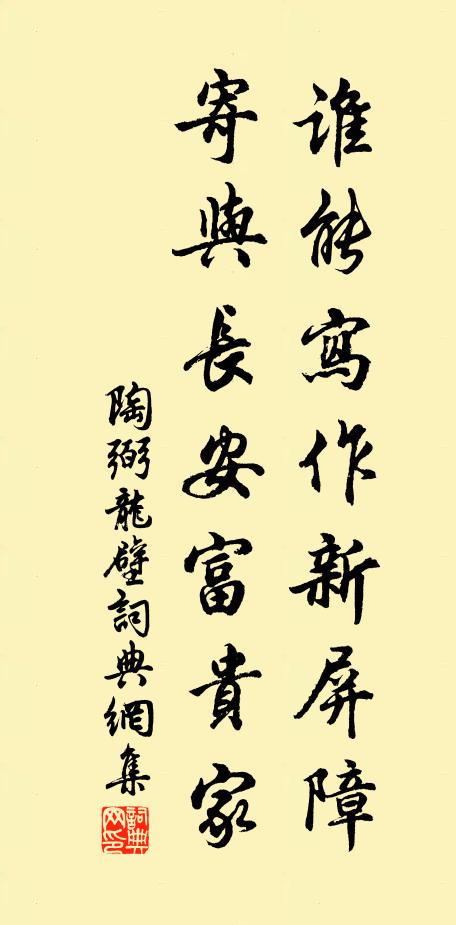 誰能寫作新屏障
寄與長安富貴家
陶弼龍壁詞典網集
詞典网印